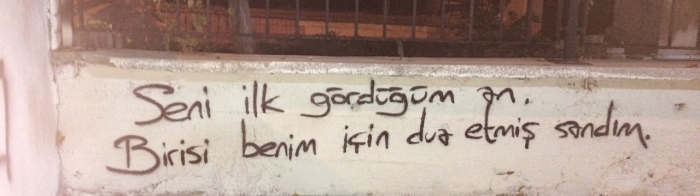 Seni ilk gördüğüm an.
Birisi benim için dua etmiş sandım.